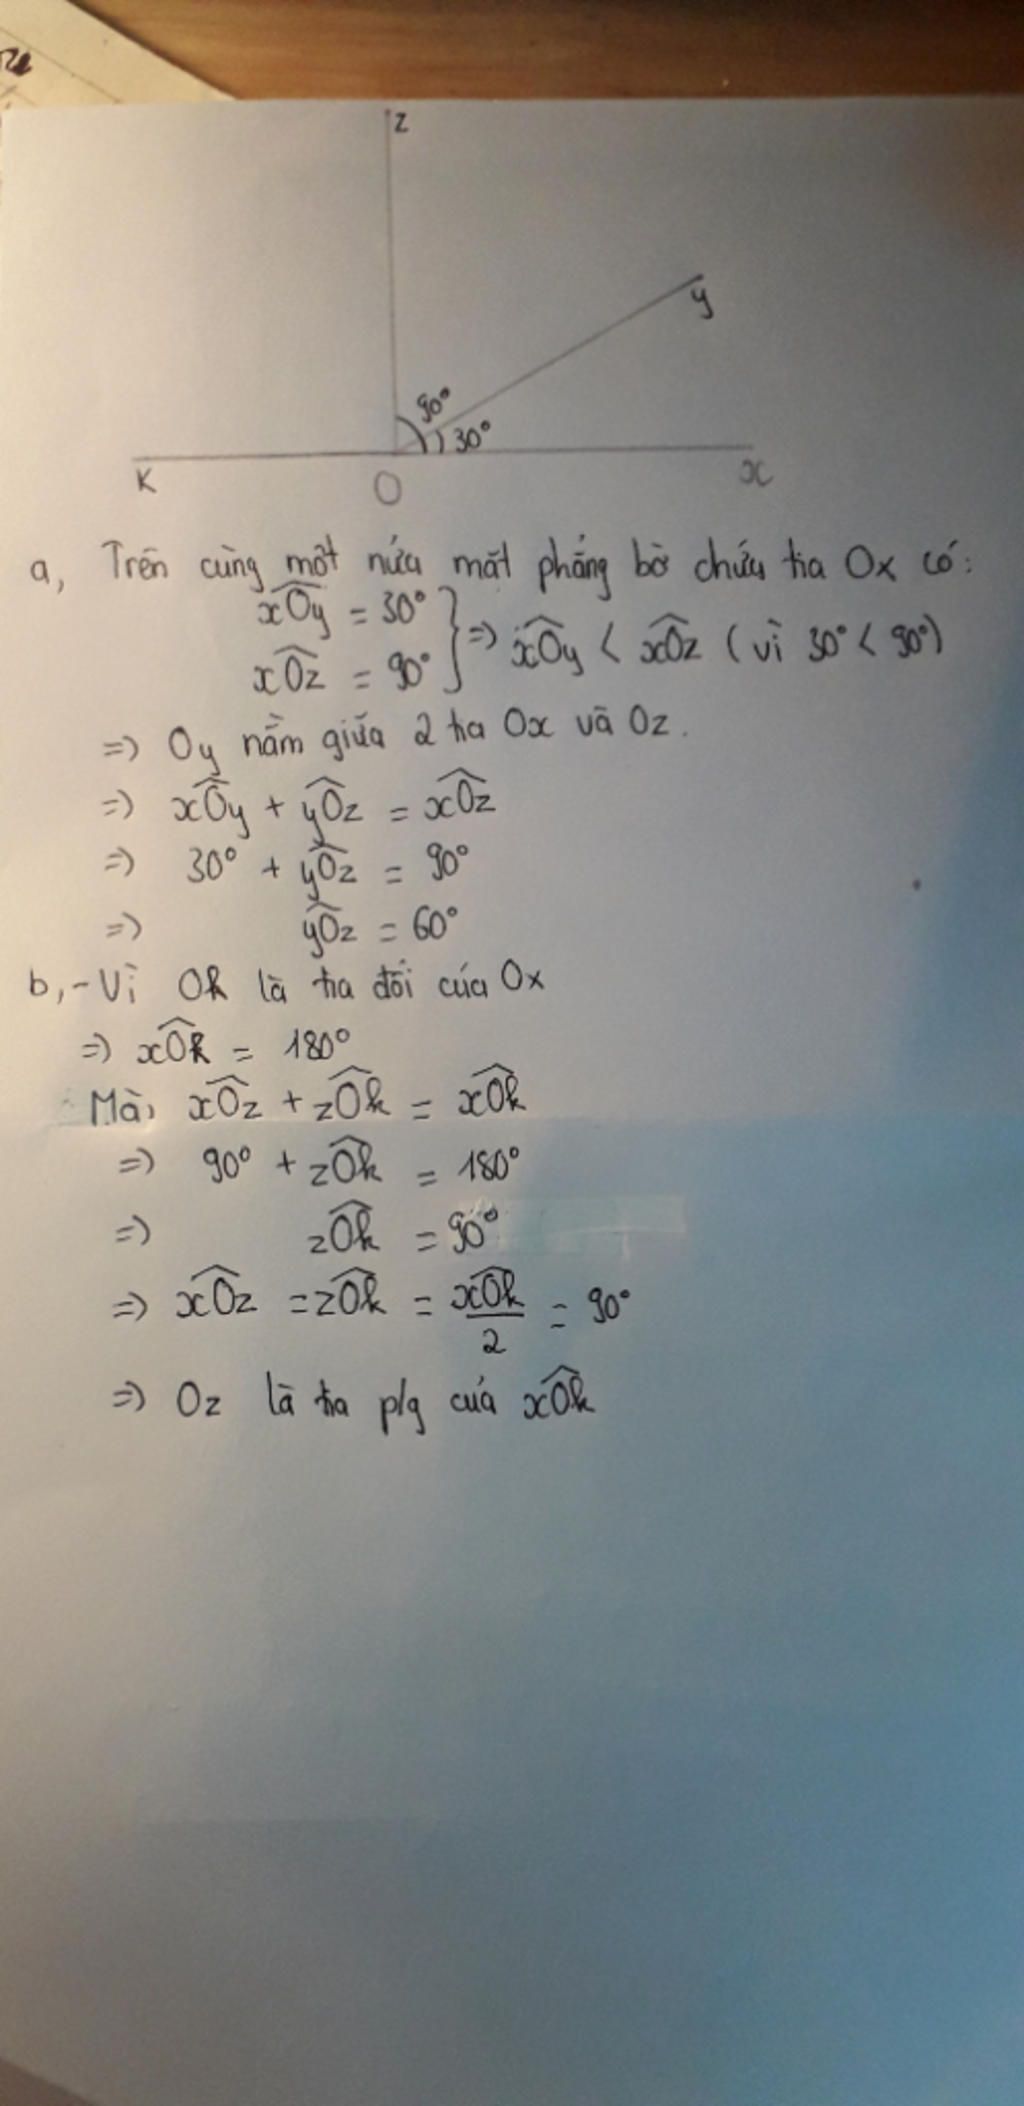 z
y
90°
30°
K
O
x
a, Trên cùng một nửa mặt phẳng bờ chứa tia Ox có:
xÔy = 30°
xÔz = 90°
} => xÔy < xÔz (vì 30° < 90°)
=> Oy nằm giữa 2 tia Ox và Oz.
=> xÔy + yÔz = xÔz
=> 30° + yÔz = 90°
=> yÔz = 60°
b, - Vì Ok là tia đối của Ox
=> xÔk = 180°
Mà, xÔz + zÔk = xÔk
=> 90° + zÔk = 180°
=> zÔk = 90°
=> xÔz = zÔk = xÔk/2 = 90°
=> Oz là tia p/g của xÔk